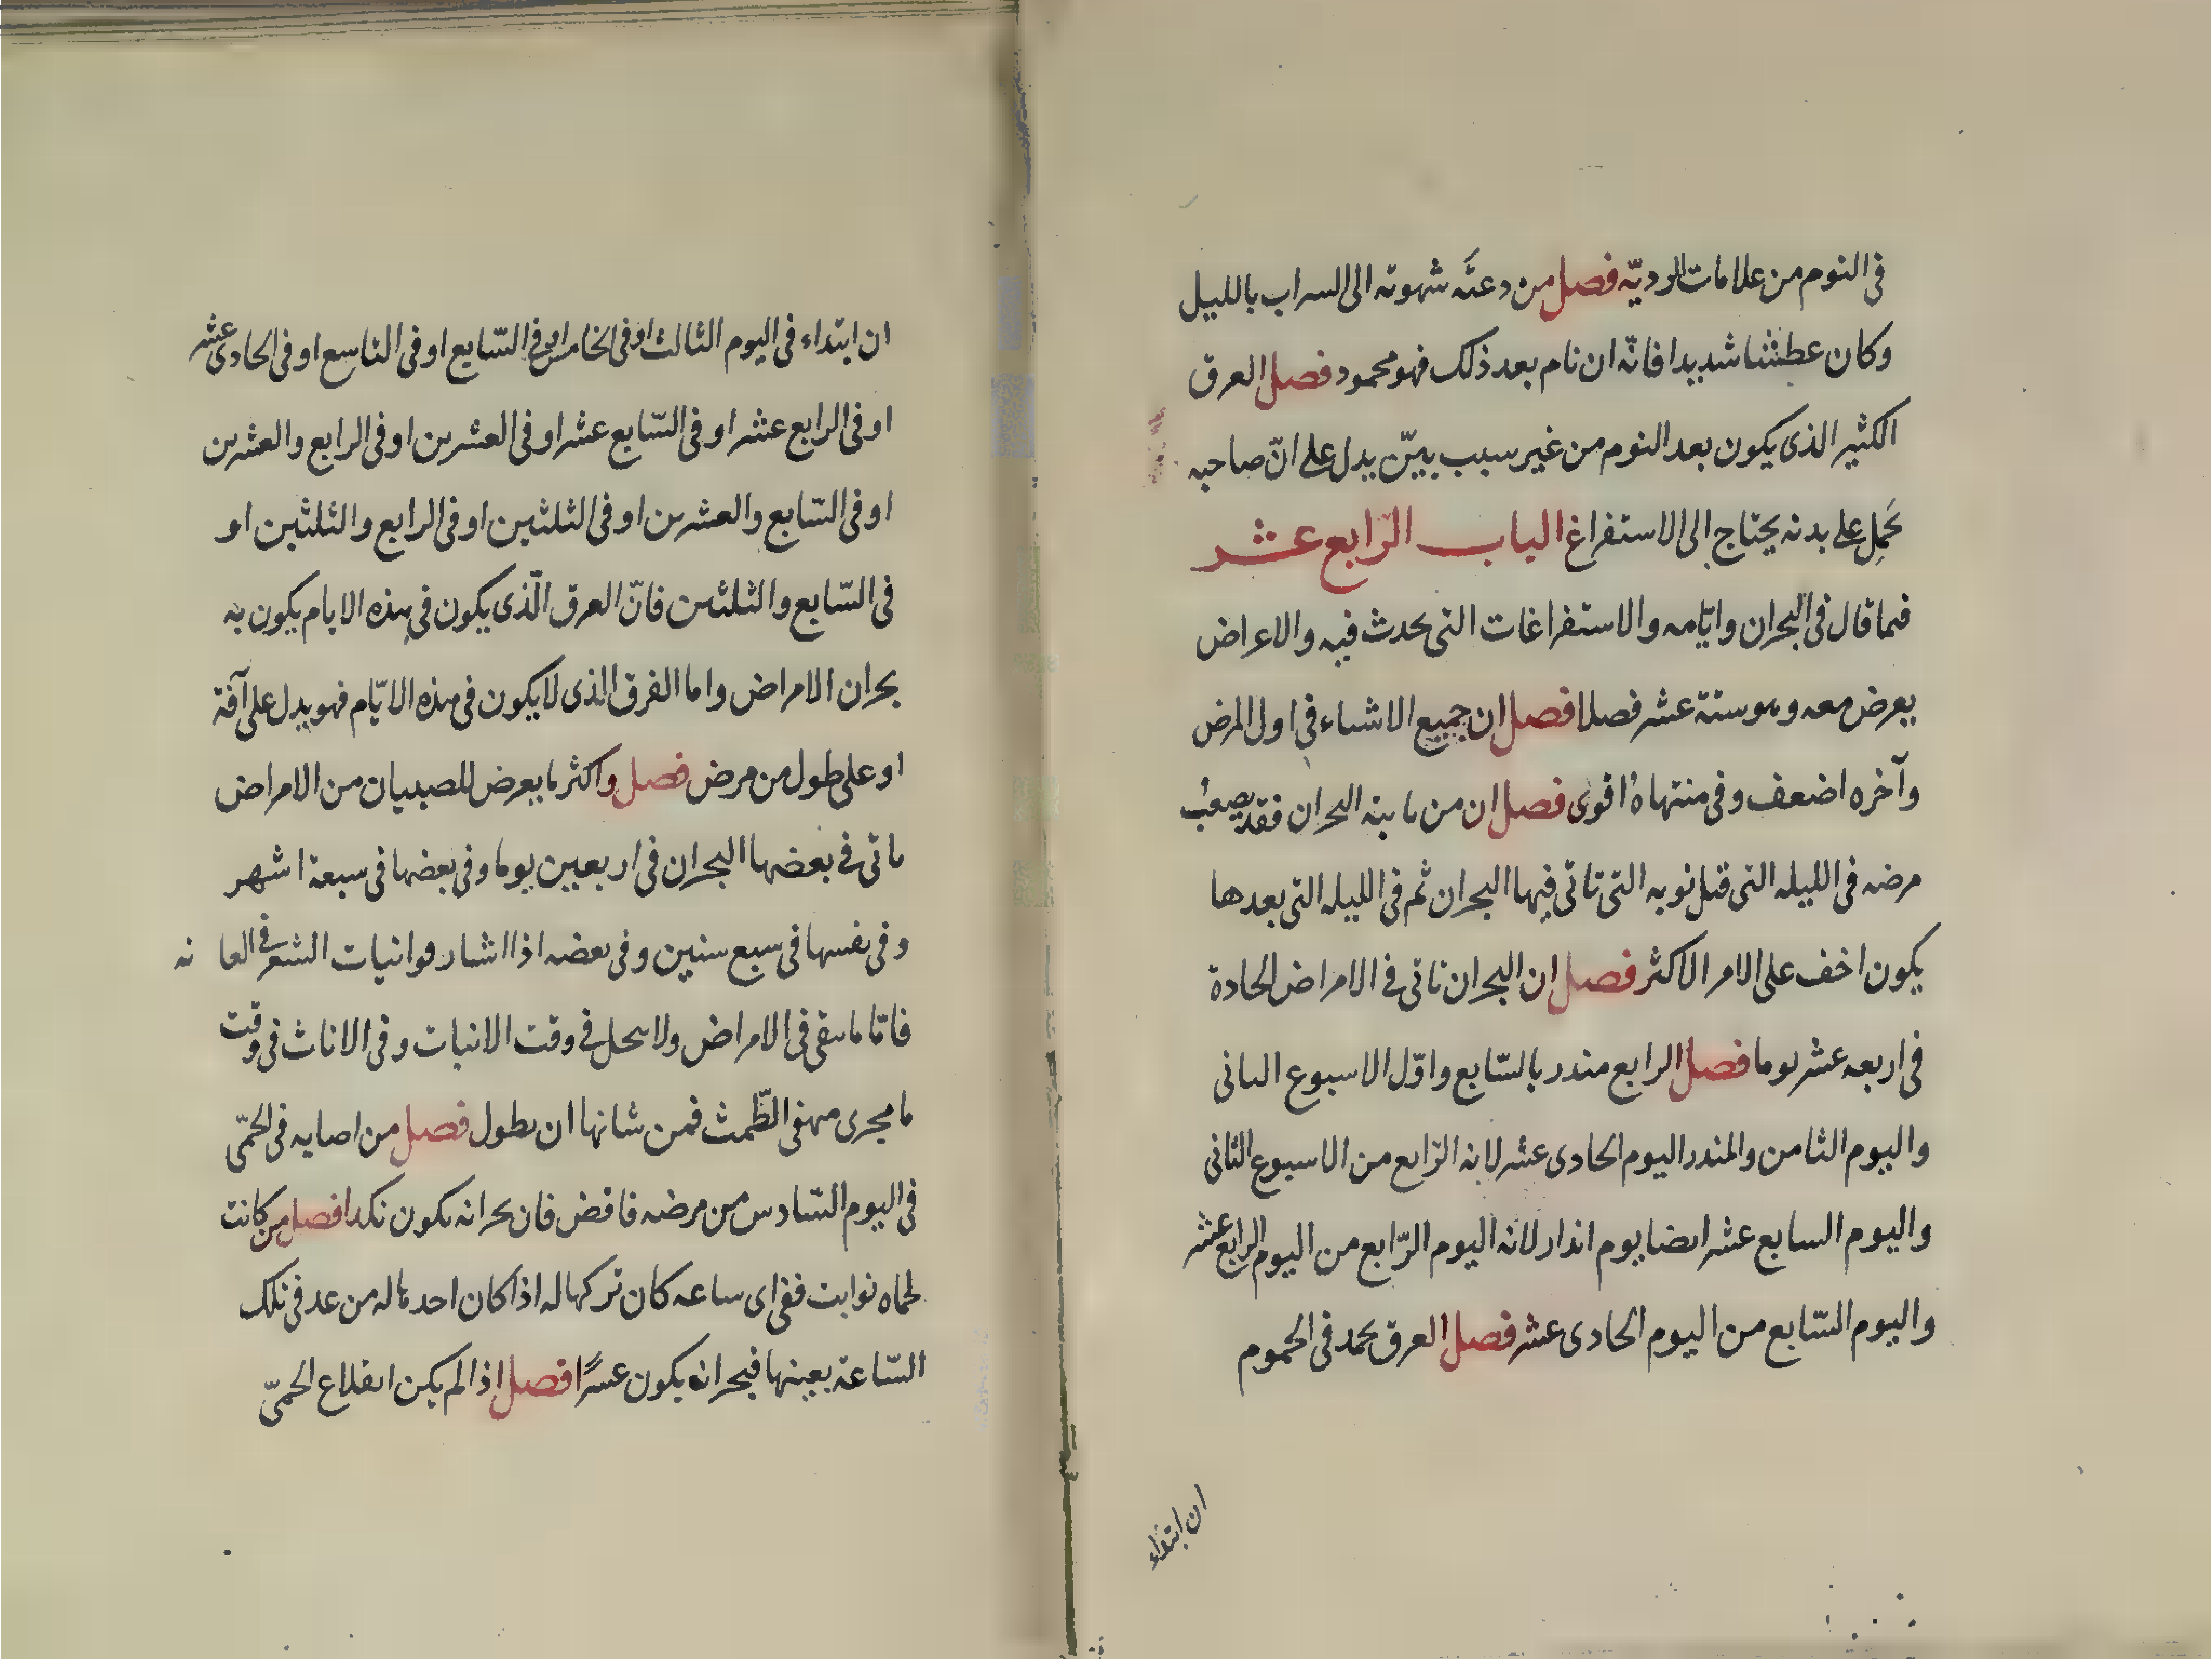 في النوم من علامات الرديّه فصل من دعته شهوته الى السراب بالليل
وكان عطشنا شديدا فانّه ان نام بعد ذلك فهو محمود فصل العرق
الكثير الذى يكون بعد النوم من غير سبب بيّن يدل على انّ صاحبه
يحمل على بدنه يحتاج الى الاستفراغ الباب الرّابع عشر
فيما قال في البحران وايّامه والاستفراغات التى يحدث فيه والاعراض
يعرض معه وهو ستة عشر فصلا فصل ان جميع الاشياء في اول المرض
وآخره اضعف وفى منتهاه اقوى فصل ان من ياتيه البحران فقد يصعب
مرضه في الليله التى قبل نوبه التى تاتى فيها البحران ثم في الليله التى بعدها
يكون اخف على الامر الاكثر فصل ان البحران تاتى في الامراض الحادة
في اربعه عشر يوما فصل الرابع منذر بالسّابع واوّل الاسبوع الثانى
واليوم الثامن والمنذر اليوم الحادى عشر لانه الرّابع من الاسبوع الثانى
واليوم السابع عشر ايضا يوم انذار لانه اليوم الرّابع من اليوم الرابع عشر
واليوم السّابع من اليوم الحادى عشر فصل العرق يحمد في الحموم
ان ابتداء
ان ابتداء في اليوم الثالث او في الخامس او في السّابع او في التاسع او في الحادى عشر
او في الرابع عشر او في السّابع عشر او في العشرين او في الرابع والعشرين
او في السّابع والعشرين او في الثلثين او في الرابع والثلثين او
في السّابع والثلثين فانّ العرق الّذى يكون في هذه الايام يكون به
بحران الامراض واما الفرق الذى لا يكون في هذه الايّام فهو يدل على آفة
او على طول من مرض فصل واكثر ما يعرض للصبيان من الامراض
ياتى في بعضها البحران في اربعين يوما وفى بعضها في سبعة اشهر
وفى نفسها في سبع سنين وفى بعضه اذا الشعر في العانه
فامّا ما يبقى في الامراض ولا يحل في وقت الانبات وفى الاناث في وقت
ما يجرى الطّمث فمن شانها ان يطول فصل من اصابه في الحمّى
في اليوم السّادس من مرضه فان بحرانه يكون نكدا فصل من كانت
لحماه نوايب ففى اى ساعه كان تركها له اذا كان احدها له من غد في تلك
السّاعة بعينها فبحرانه يكون عسرًا فصل اذا لم يكن اقلاع الحمىّ